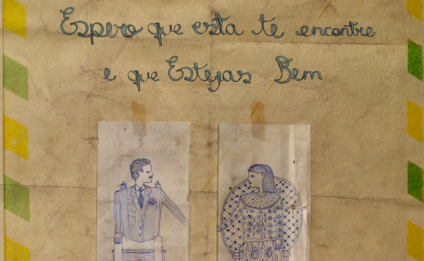 Espero que esta te encontre
e que Estejas Bem